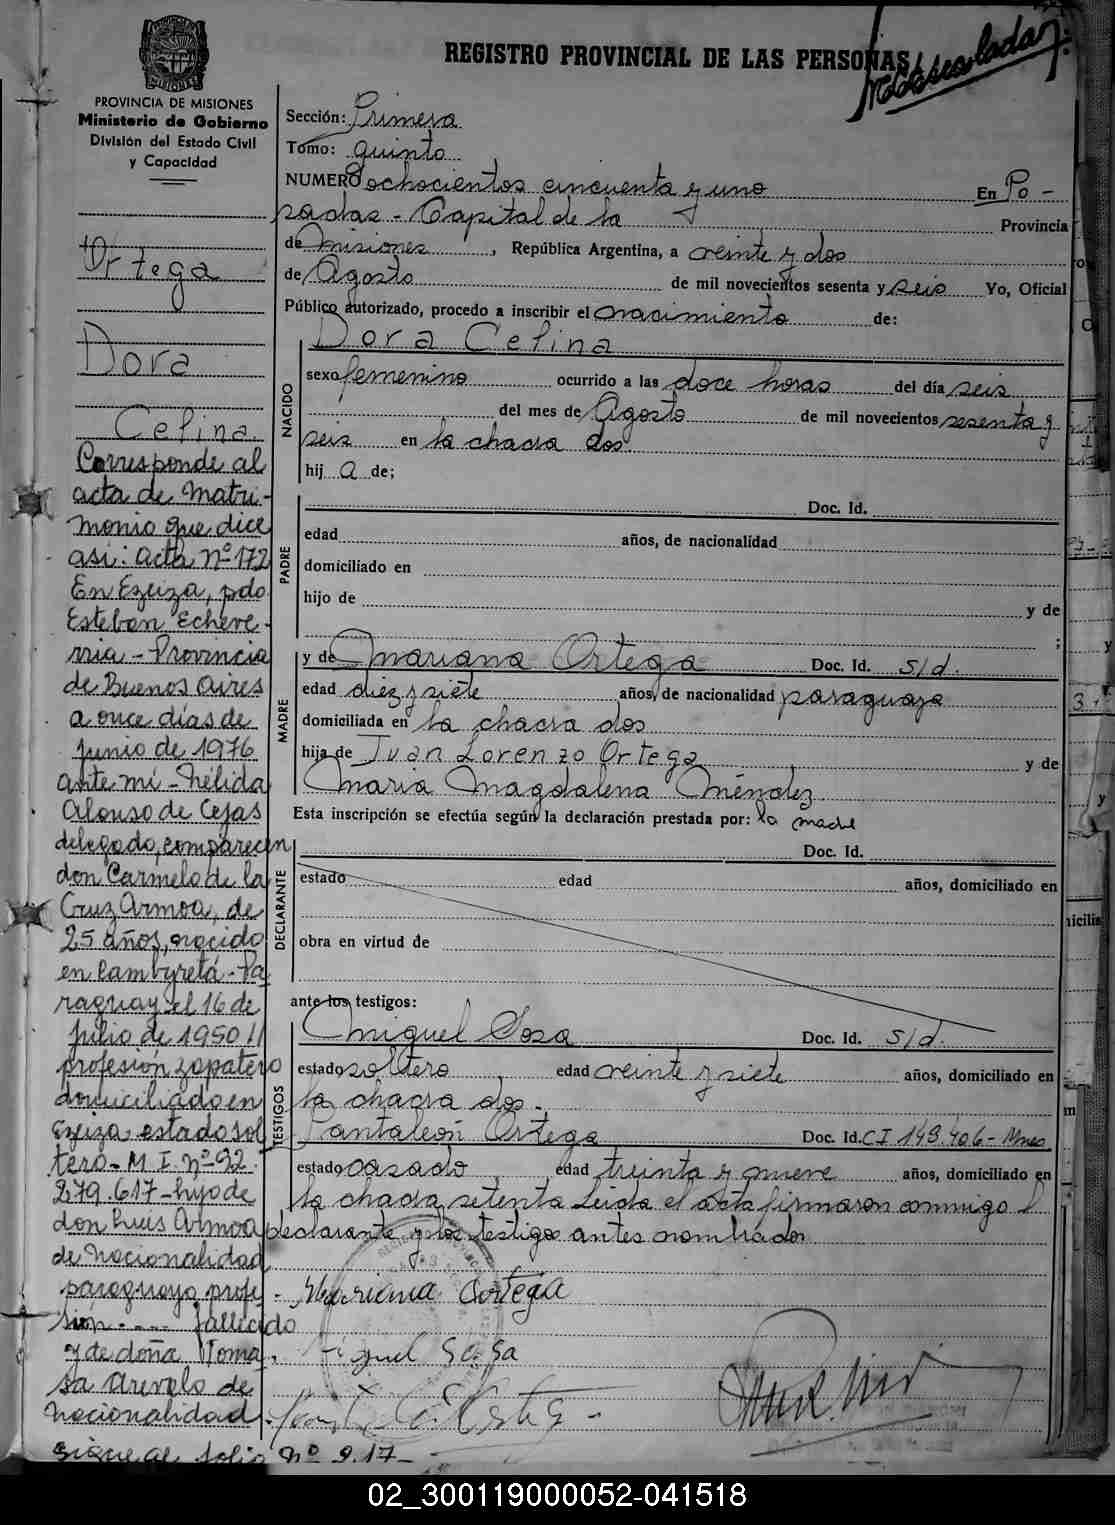 REGISTRO PROVINCIAL DE LAS PERSONAS
PROVINCIA DE MISIONES
Ministerio de Gobierno
División del Estado Civil
y Capacidad
Ortega
Dora
Celina
Corresponde al
acta de Matri-
monio que dice
asi: acta Nº 172
En Ezeiza, pdo
Esteban Echeve-
rria - Provincia
de Buenos Aires
a once días de
junio de 1976
ante mi - Nélida
Alonso de Cejas
delegado, comparecen
don Carmelo de la
Cruz Armoa, de
25 años, nacido
en Cambyretá - Pa
raguay el 16 de
julio de 1950 //
profesión zapatero
domiciliado en
Ezeiza estado sol
tero - M I. nº 92.
279.617 - hijo de
don Luis Armoa
de nacionalidad
paraguaya profe-
sión - - - - fallecido
y de doña Toma-
sa Arevalo de
nacionalidad
sigue al folio Nº 917-
Sección: Primera
Tomo: quinto
NUMERO ochocientos cincuenta y uno En Po-
sadas - Capital de la Provincia
de Misiones, República Argentina, a veinte y dos
de Agosto de mil novecientos sesenta y seis Yo, Oficial
Público autorizado, procedo a inscribir el nacimiento de:
NACIDO
Dora Celina
sexo femenino ocurrido a las doce horas del día seis
del mes de Agosto de mil novecientos sesenta y
seis en la chacra dos.
hij a de;
PADRE
Doc. Id.
edad años, de nacionalidad
domiciliado en
hijo de y de
;
MADRE
y de Mariana Ortega Doc. Id. s/d.
edad diez y siete años, de nacionalidad paraguaya
domiciliada en la chacra dos
hija de Juan Lorenzo Ortega y de
Maria Magdalena Méndez
Esta inscripción se efectúa según la declaración prestada por: la madre
DECLARANTE
Doc. Id.
estado edad años, domiciliado en
obra en virtud de
ante los testigos:
TESTIGOS
Miguel Sosa Doc. Id. s/d.
estado soltero edad veinte y siete años, domiciliado en
la chacra dos.
Pantaleón Ortega Doc. Id. CI 149.406 - Mnes
estado casado edad treinta y nueve años, domiciliado en
la chacra setenta Leida el acta firmaron conmigo l
declarante y los testigos antes nombrados
Mariana Ortega
Miguel Sosa
02_300119000052-041518